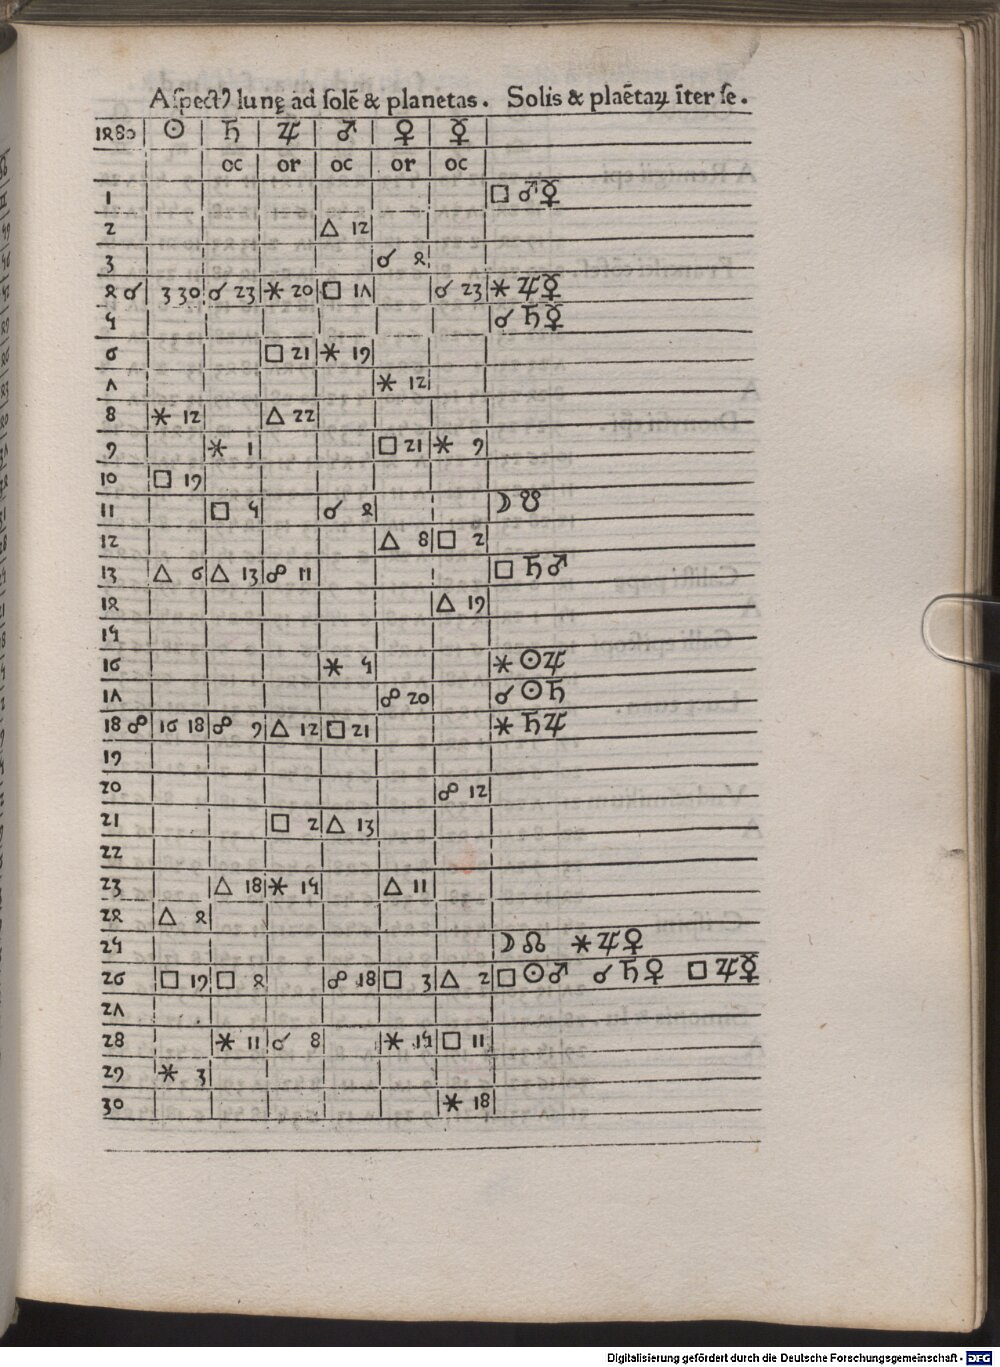 Aſpectꝰ lunę ad ſolē & planetas. Solis & plaētaꝝ īter ſe.
1480 ☉ ♄ ♃ ♂ ♀ ☿
oc or oc or oc
1 □ ♂☿
2 △ 12
3 ☌ 4
4 ☌ 3 30 ☌ 23 ⚹ 20 □ 17 ☌ 23 ⚹ ♃☿
5 ☌ ♄☿
6 □ 21 ⚹ 19
7 ⚹ 12
8 ⚹ 12 △ 22
9 ⚹ 1 □ 21 ⚹ 9
10 □ 19
11 □ 5 ☌ 4 ☽ ☋
12 △ 8 □ 2
13 △ 6 △ 13 ☍ 11 □ ♄♂
14 △ 19
15
16 ⚹ 5 ⚹ ☉♃
17 ☍ 20 ☌ ☉♄
18 ☍ 16 18 ☍ 9 △ 12 □ 21 ⚹ ♄♃
19
20 ☍ 12
21 □ 2 △ 13
22
23 △ 18 ⚹ 15 △ 11
24 △ 4
25 ☽ ☊ ⚹ ♃♀
26 □ 19 □ 4 ☍ 18 □ 3 △ 2 □ ☉♂ ☌ ♄♀ □ ♃☿
27
28 ⚹ 11 ☌ 8 ⚹ 15 □ 11
29 ⚹ 3
30 ⚹ 18
Digitalisierung gefördert durch die Deutsche Forschungsgemeinschaft - DFG